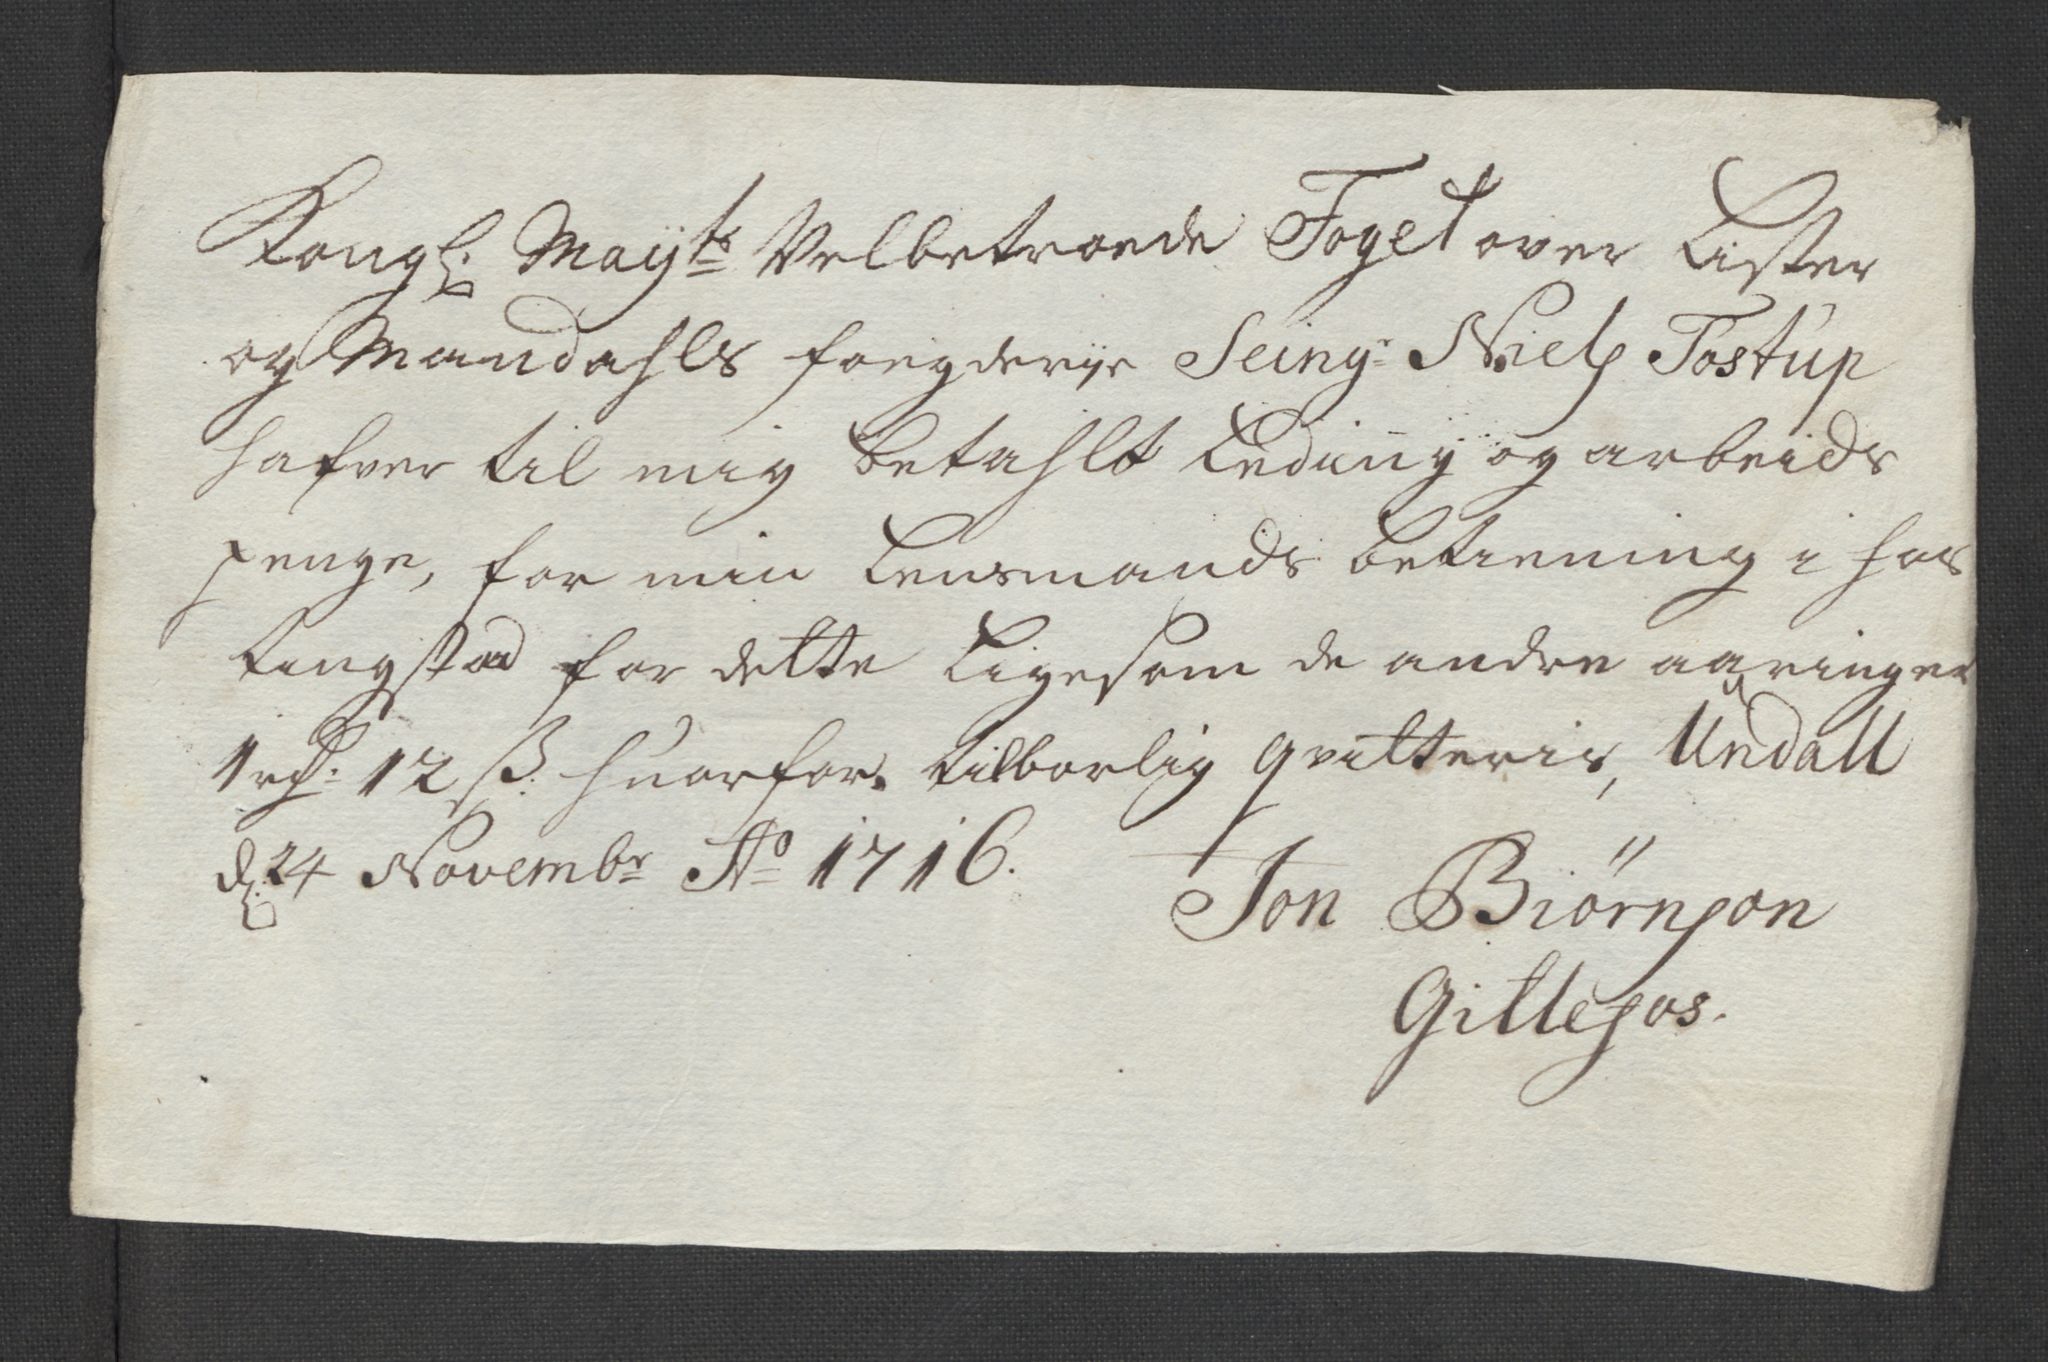 Kongl: Mayts Velbetroede Foget over Lister
og Mandahls foegderije Seingr Niels Tostup
hafver til mig betahlt Leding og arbeids
penge, for min Lensmands betiening i hos
tingstad for dette Ligesom de andre aaringer
1 rd: 12 ß: huorfor tilborlig qvitteris, Undall
d: 24 Novembr Ao 1716.
Jon Biörnson
Gitlesos.